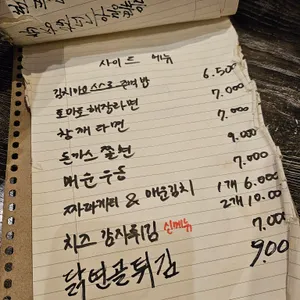 사이드 메뉴
김치마요 스스로 주먹밥 6.500
토마토 해장라면 7.000
황제라면 7.000
돈까스 쫄면 9.000
매운 우동 7.000
짜파게티 & 매운김치 1개 6.000
2개 10.000
치즈 감자튀김 신메뉴 7.00
닭연골튀김 900